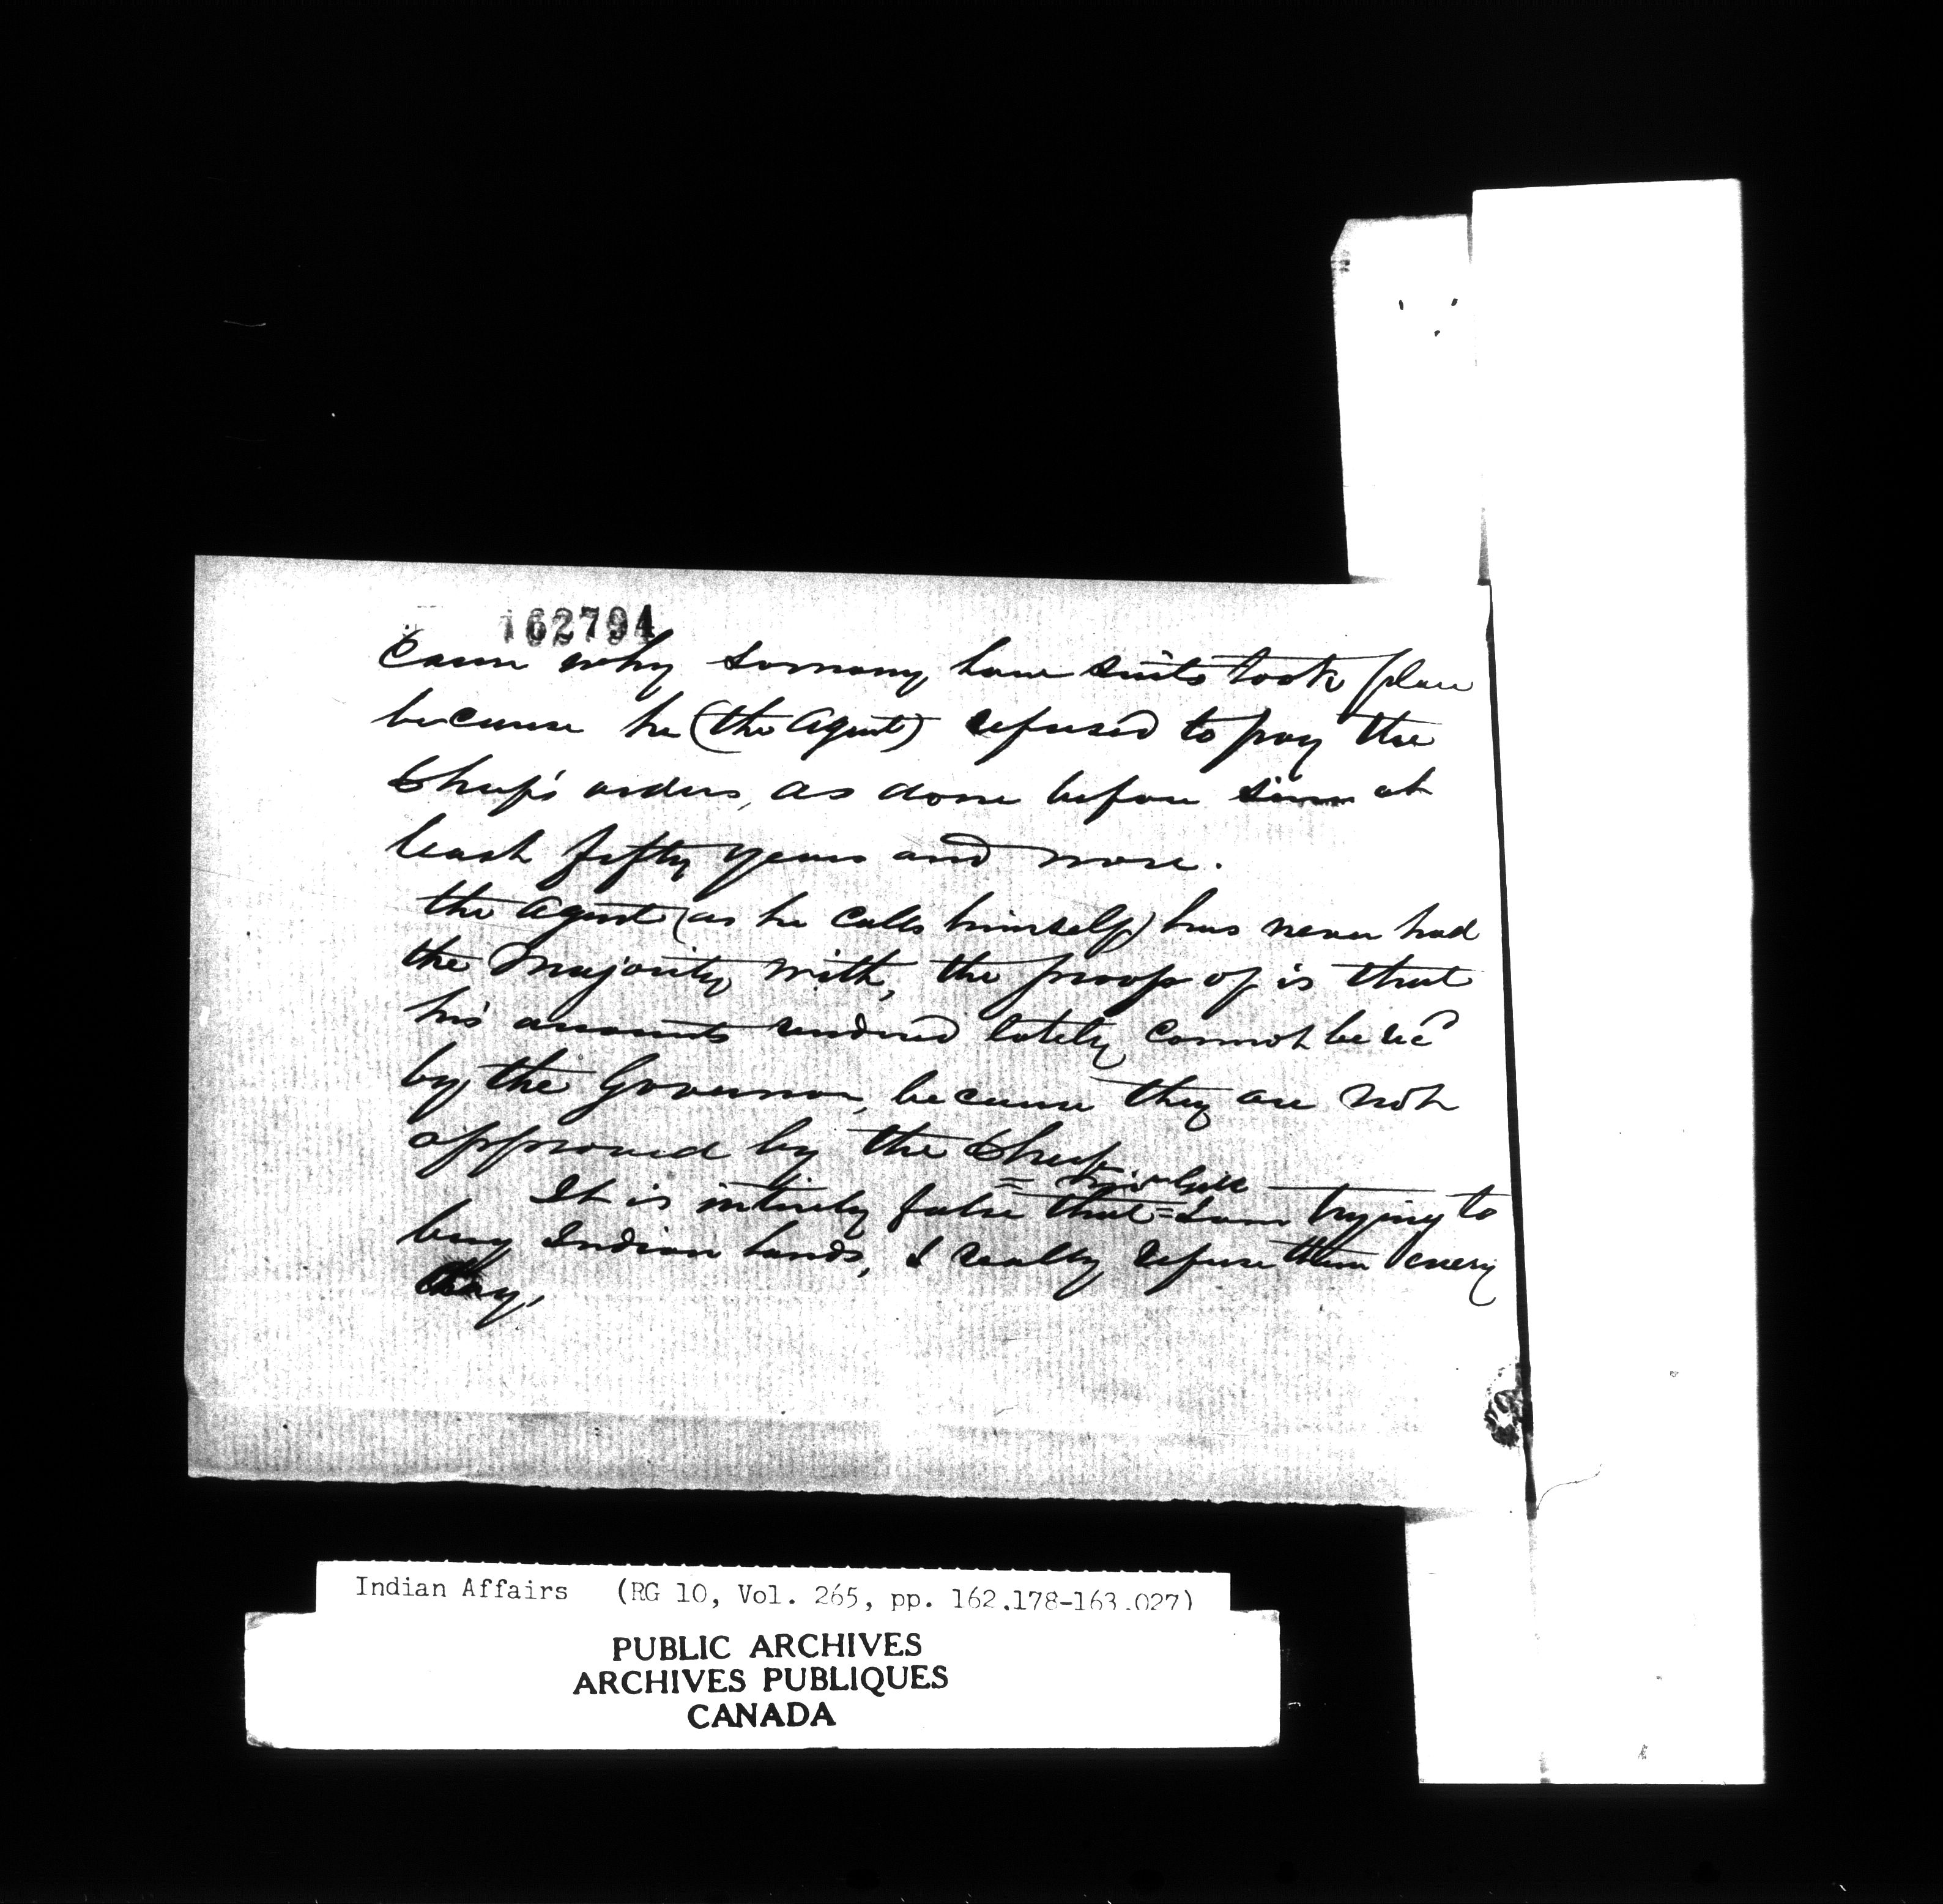 162794
Cause why so many law suits took place
because he (the Agent) refused to pay the
Chief's orders, as done before since at
least fifty years and more.
the Agent (as he calls himself) has never had
the Majority with, the proof of is that
his accounts rendered lately cannot be rec'd
by the Governor, because they are not
approved by the Chiefs.
It is intirely false that = I am trying to
buy Indian lands, I really refuse them every
day,
Indian Affairs (RG 10, Vol. 265, pp. 162,178-163.027)
PUBLIC ARCHIVES
ARCHIVES PUBLIQUES
CANADA